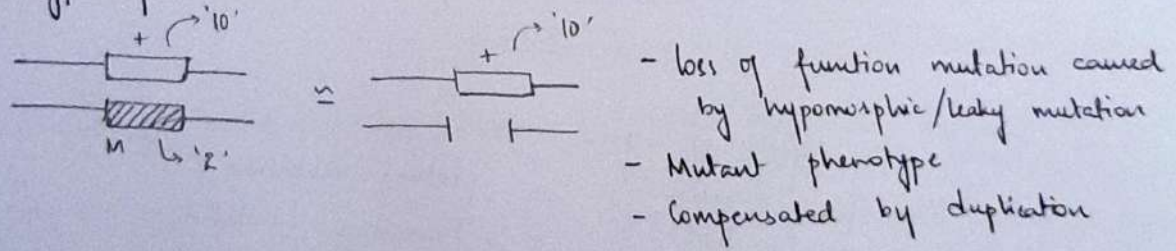 '10'
'10'
+
+
≃
M
'2'
- loss of funtion mutation caused
by hypomorphic/leaky mutation
- Mutant phenotype
- Compensated by duplication